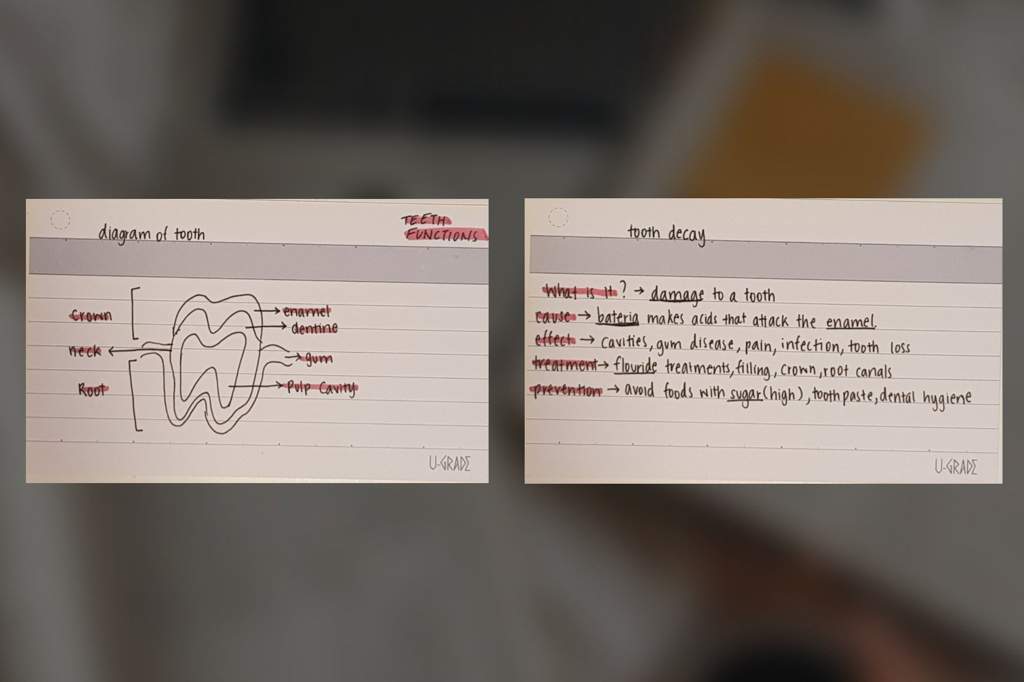 diagram of tooth
TEETH
FUNCTIONS
Crown
neck
Root
enamel
dentine
gum
Pulp Cavity
U-GRADE
tooth decay
What is it? → damage to a tooth
cause → bateria makes acids that attack the enamel
effect → cavities, gum disease, pain, infection, tooth loss
treatment → flouride treatments, filling, crown, root canals
prevention → avoid foods with sugar (high), toothpaste, dental hygiene
U-GRADE